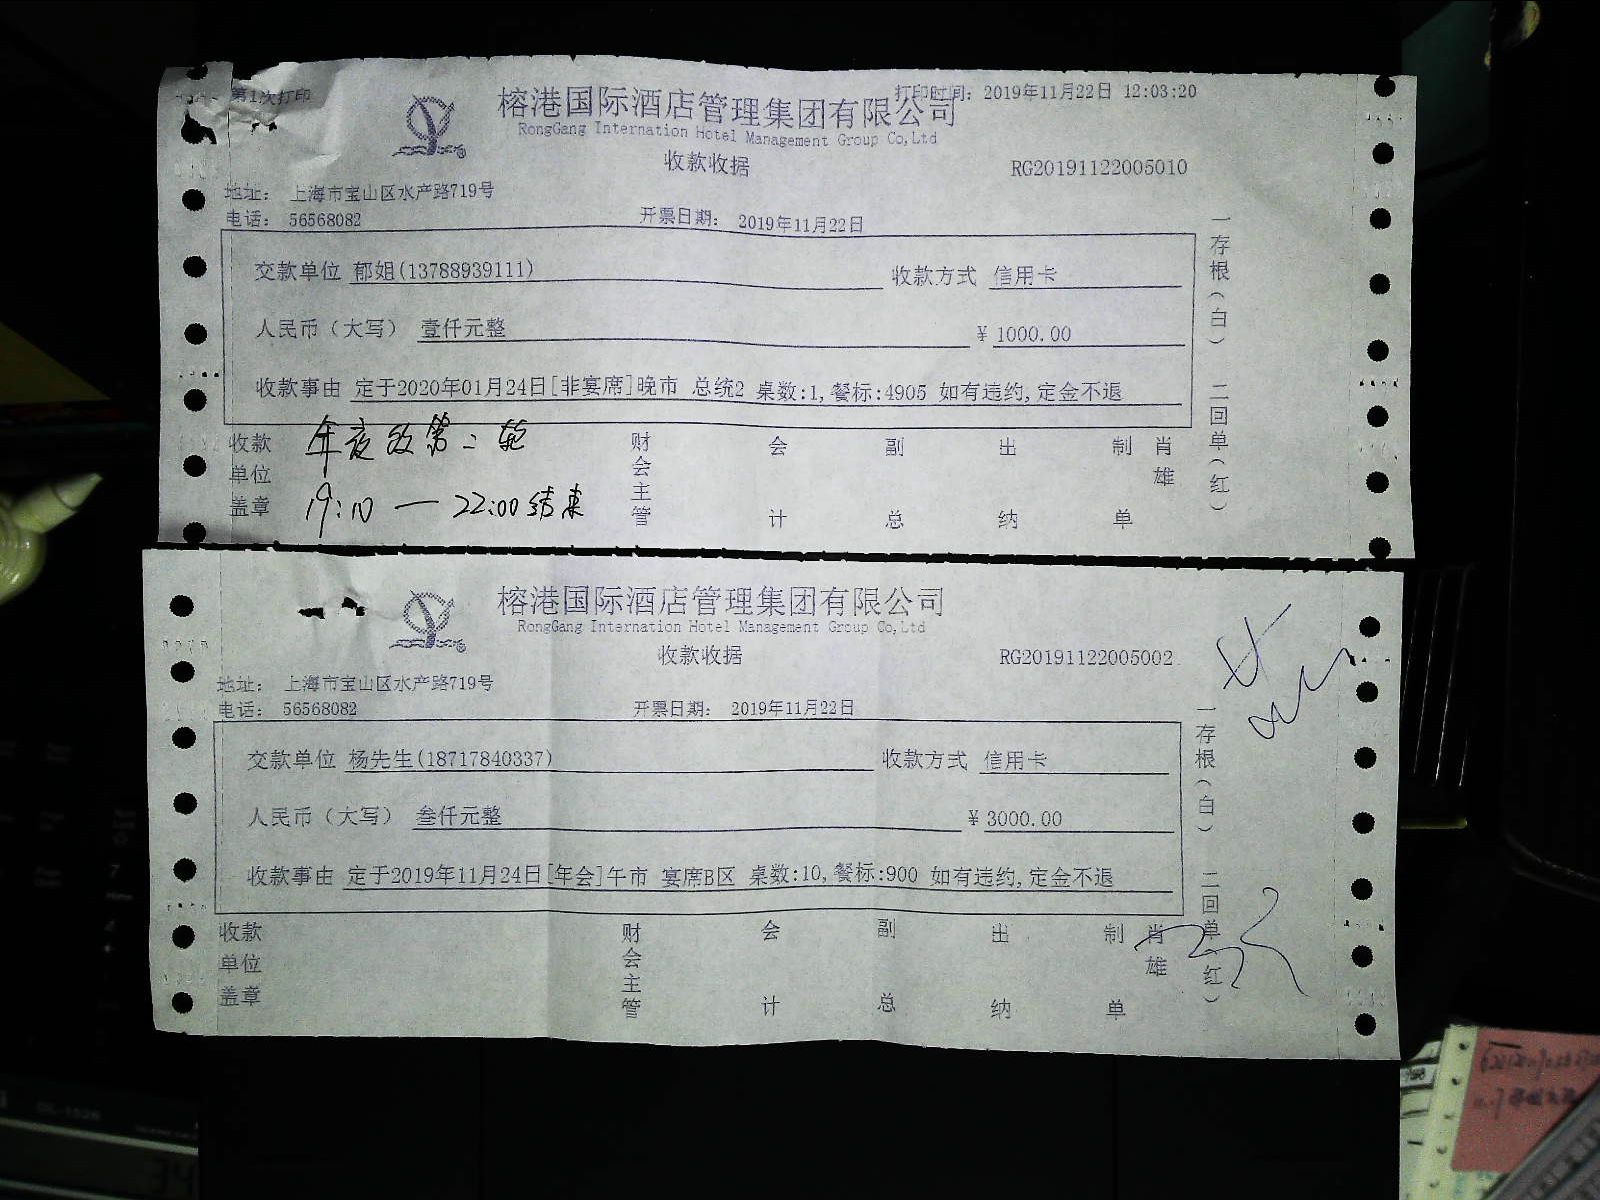 第1次打印
打印时间: 2019年11月22日 12:03:20
榕港国际酒店管理集团有限公司
RongGang Internation Hotel Management Group Co,Ltd
收款收据
RG20191122005010
地址: 上海市宝山区水产路719号
电话: 56568082
开票日期: 2019年11月22日
交款单位 郁姐(13788939111) 收款方式 信用卡
人民币(大写) 壹仟元整 ¥ 1000.00
收款事由 定于2020年01月24日[非宴席]晚市 总统2 桌数:1,餐标:4905 如有违约,定金不退
一存根(白) 二回单(红)
收款单位盖章
年夜饭第二轮
19:10 — 22:00结束
财会主管 会计 副总 出纳 制单 肖雄
榕港国际酒店管理集团有限公司
RongGang Internation Hotel Management Group Co,Ltd
收款收据
RG20191122005002
地址: 上海市宝山区水产路719号
电话: 56568082
开票日期: 2019年11月22日
交款单位 杨先生(18717840337) 收款方式 信用卡
人民币(大写) 叁仟元整 ¥ 3000.00
收款事由 定于2019年11月24日[年会]午市 宴席B区 桌数:10,餐标:900 如有违约,定金不退
一存根(白) 二回单(红)
收款单位盖章
财会主管 会计 副总 出纳 制单 肖雄